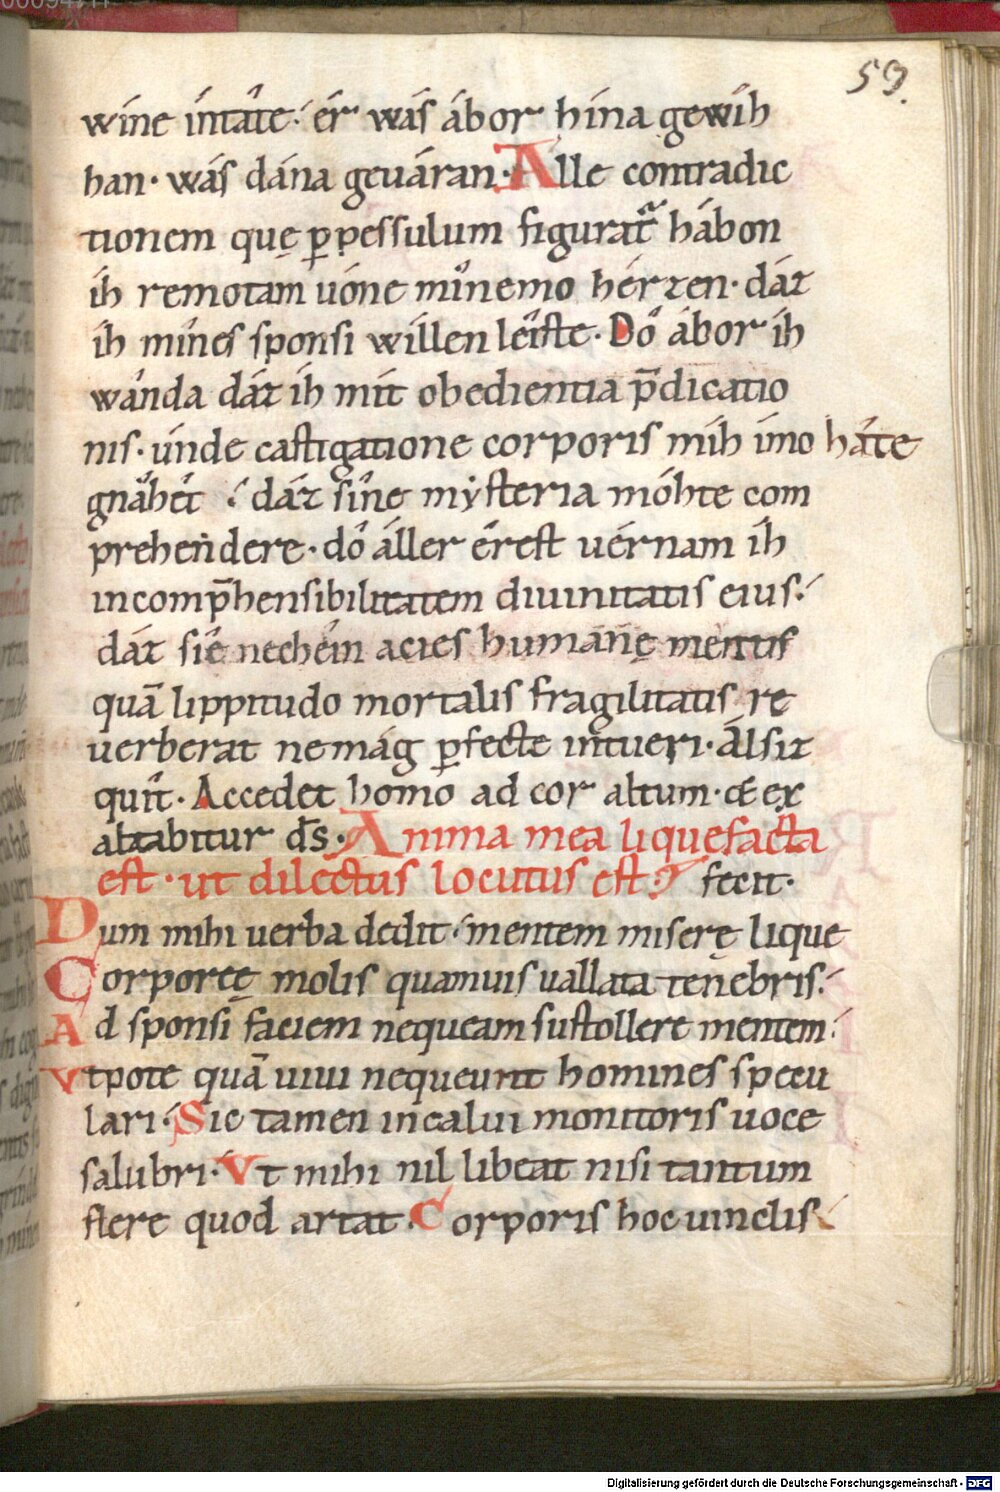 59.
wíne íntâte· ér wás ábor hína gewíh
han· wás dána geuáran· Alle contradic
tionem quę p̱pessulum figurat᷑ hábon
ih remotam uóne mînemo hérzen· dáz
ih mînes sponsi willen leíste· Dô ábor ih
wánda dáz ih mít obedientia p̄dicatio
nis· únde castigatione corporis míh ímo háte
gnâhet dáz sîne mẏsteria móhte com
prehendere· dô áller érest uérnam íh
incomp̄hensibilitatem diuinitatis eius·
dáz sîe nechéin acies humanę mentis
quā lippitudo mortalis fragilitatis re
uerberat nemág p̱fecte intueri· Álsiz
quît· Accedet homo ad cor altum· & ex
altabitur d̄s· Anima mea liquefacta
est· ut dilectus locutus est· fecit·
Dum mihi uerba dedit· mentem miserę lique
Corporeę molis quamuis uallata tenebris·
Ad sponsi faciem nequeam sustollere mentem·
Vtpote quā uiui nequeunt homines specu
lari· Sic tamen incalui monitoris uoce
salubri· Vt mihi nil libeat nisi tantum
flere quod artat· Corporis hoc uinclis
Digitalisierung gefördert durch die Deutsche Forschungsgemeinschaft - DFG